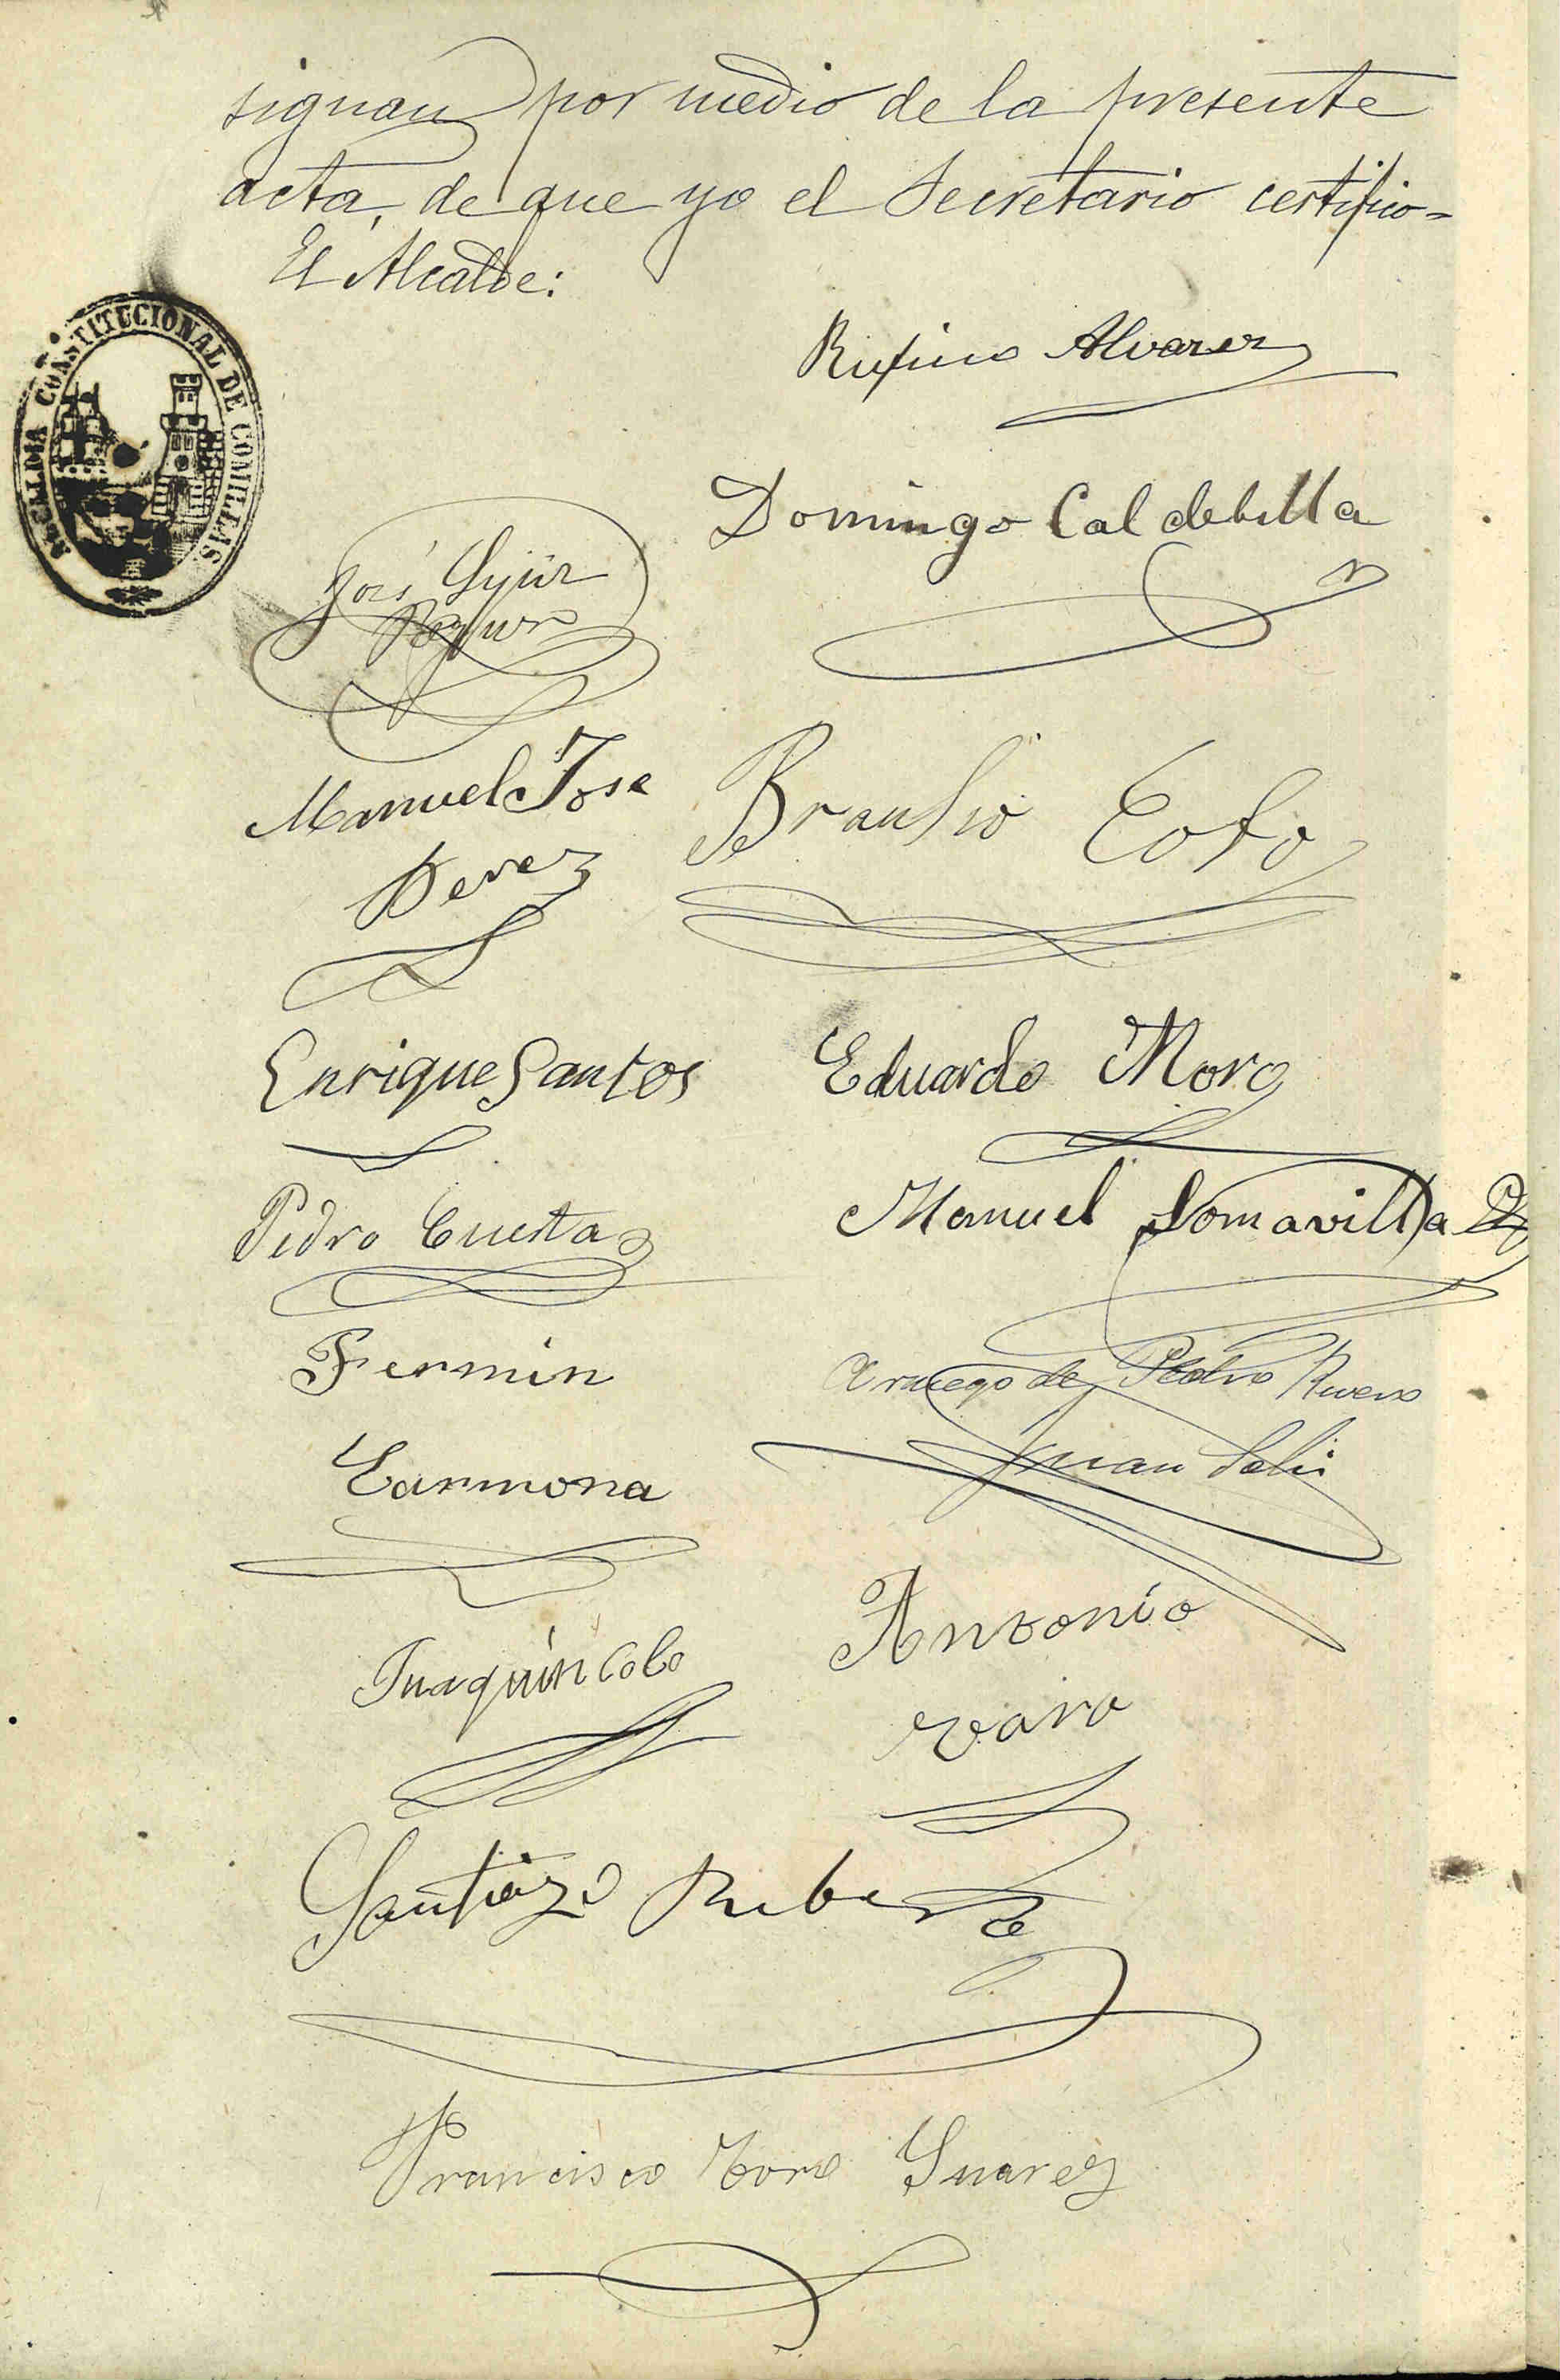 signan por medio de la presente
acta, de que yo el Secretario certifico=
El Alcalde:
ALCALDIA CONSTITUCIONAL DE COMILLAS
Rufino Alvarez
Domingo Caldebilla
José
Manuel Jose
Perez
Braulio Coto
Enrique Santos
Eduardo Moro
Pedro Cuesta
Manuel Somavilla
Fermin
Carmona
A ruego de Pedro
Juan
Juaquin Cobo
Antonio
Santiago
Francisco Toro Suarez